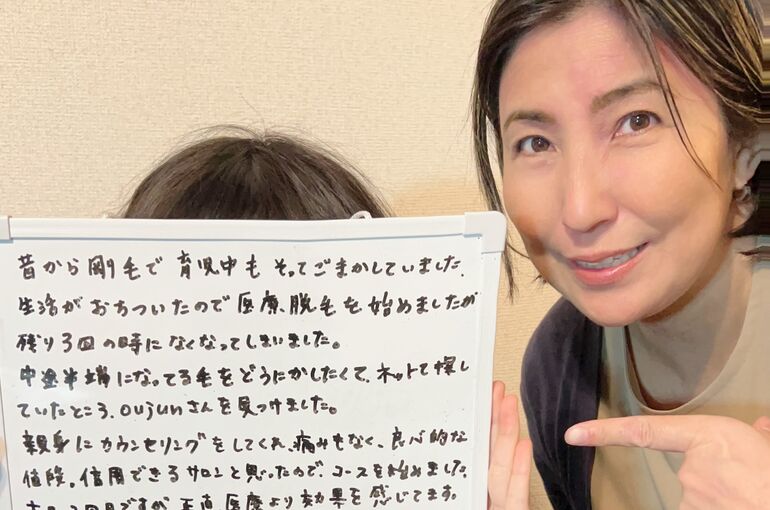 昔から剛毛で育児中もそってごまかしていました.
生活がおちついたので医療脱毛を始めましたが
残り3回の時になくなってしまいました。
中途半端になってる毛をどうにかしたくて、ネットで探し
ていたところ、oujunさんを見つけました。
親身にカウンセリングをしてくれ、痛みもなく、良心的な
値段。信用できるサロンと思ったので、コースを始めました.
2回目ですが正直医療より効果を感じてます。